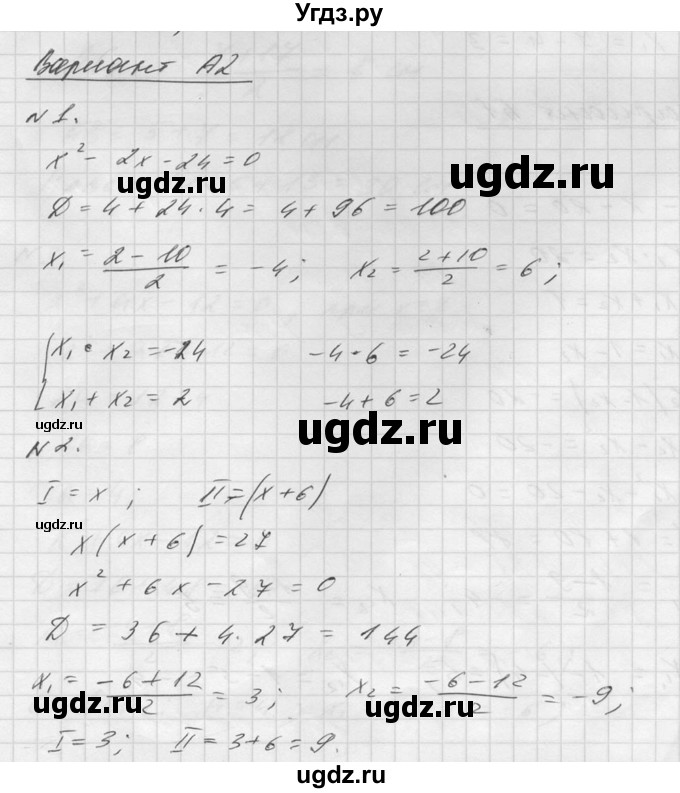 Угдз.ру
Вариант А2
№1.
x² - 2x - 24 = 0
ugdz.ru
ugdz.ru
Д = 4 + 24 · 4 = 4 + 96 = 100
x₁ = (2 - 10)/2 = -4; x₂ = (2 + 10)/2 = 6;
x₁ · x₂ = -24 -4 · 6 = -24
x₁ + x₂ = 2 -4 + 6 = 2
ugdz.ru
ugdz.ru
№2.
I = x; II = (x + 6)
ugdz.ru
x(x + 6) = 27
x² + 6x - 27 = 0
Д = 36 + 4 · 27 = 144
x₁ = (-6 + 12)/2 = 3; x₂ = (-6 - 12)/2 = -9;
ugdz.ru
ugdz.ru
I = 3; II = 3 + 6 = 9.
ugdz.ru